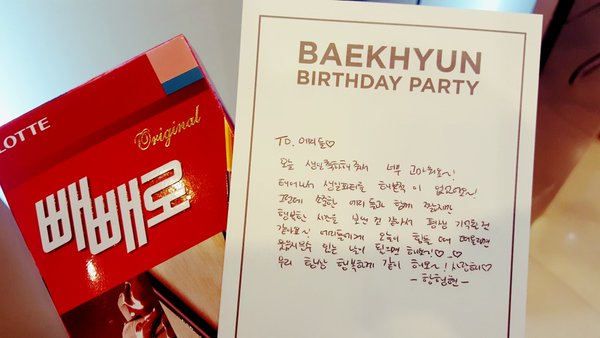 LOTTE
Original
빼빼로
BAEKHYUN
BIRTHDAY PARTY
TO. 에리들♡
오늘 생일축하해줘서 너무 고마워요~!
태어나서 생일파티를 해본적이 없어요~!
근데 소중한 에리들과 함께 짧지만
행복한 시간을 보낸 것 같아서 평생 기억될 것
같아요~! 에리들에게 오늘이 힘들 때 떠올리면
웃음지을수 있는 날이 됐으면 해요~! ^_^
우리 항상 행복하게 같이 해요~! 사랑해♡